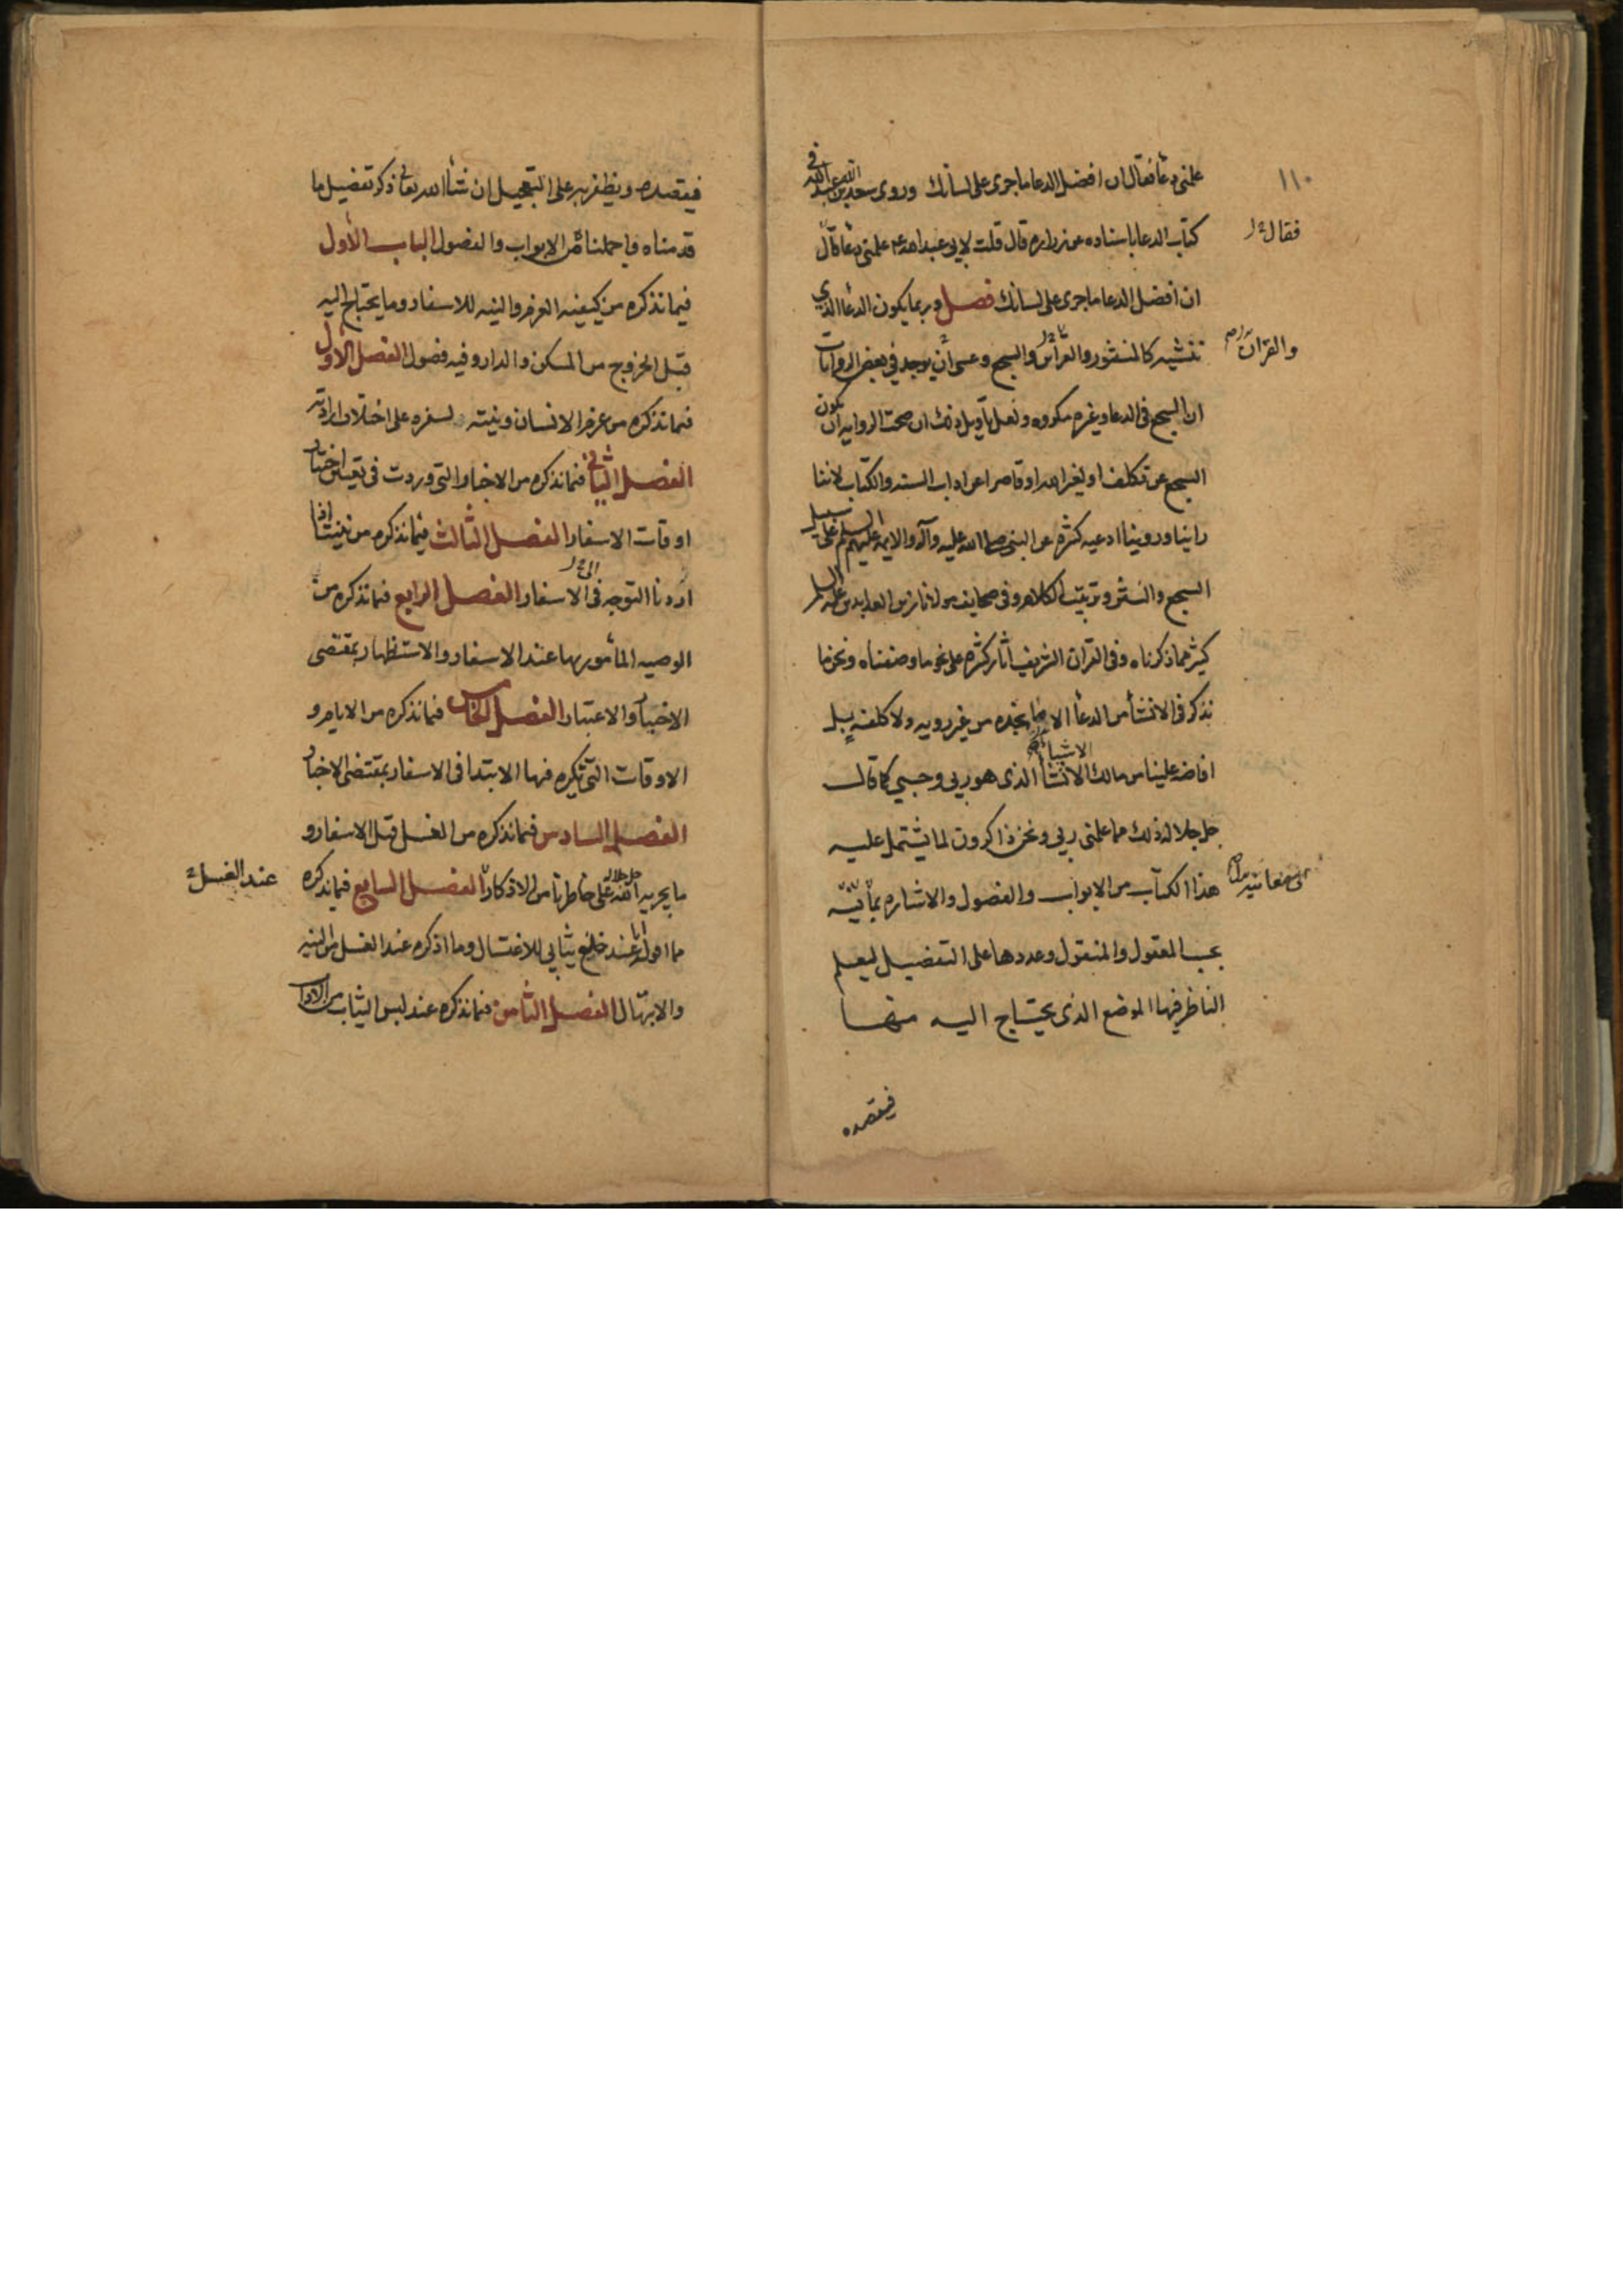 ١١٠
علمنی دعأ فقال ان افضل الدعا ما جری علی لسانك وروی سعد بن عبد الله فی
كتاب الدعا باسناده عن زراره قال قلت لابی عبد الله ع علمنی دعأ قال
فقال
ان افضل الدعا ما جری علی لسانك فصل وربما یكون الدعأ الذی
ننشیه كالمنثور والسجع وعسی أن یوجد فی بعض الروایات
والقران
ان السجع فی الدعا وغیره مكروه ولعل تأویل ذلك ان صحت الروایه ان یكون
السجع عن تكلف او لغیر الله او قاصرا عن اداب السنه والكتاب لاننا
راینا وروینا ادعیه كثیره عن النبی صلی الله علیه وآله والایمه علیهم السلم علی سبیل
السجع والنثر وترتیب الكلام وفی صحایف مولانا زین العابدین علیه السلم
كثیر مما ذكرناه وفی القران الشریف اثار كثیره علی نحو ما وصفناه ونحن ما
نذكر فی الانشأ من الدعأ الا ما نجده من غیر رویه ولا كلفه بل
الاشیأ
افاضه علینا من مالك الانشأ الذی هو ربی وحسبی كما قال
جل جلاله ذلك مما علمنی ربی ونحن ذاكرون لما یشتمل علیه
هذا الكتاب من الابواب والفصول والاشاره
الی معانیه
بحسب المعقول والمنقول وعددها علی التفصیل لیعلم
الناظر فیها الموضع الذی یحتاج الیه منها
فیقصده
فیقصده ویظفر به علی التعجیل ان شأ الله تعالی ذكر تفضیل ما
قدمناه من الابواب والفصول الباب الأول
فیما نذكره من كیفیه العزم والنیه للاسفار وما یحتاج الیه
قبل الخروج من المسكن والدار وفیه فصول الفصل الاول
فیما نذكره من عزم الانسان ونیته لسفره علی اختلاف ارادته
الفصل الثانی فیما نذكره من الاخبار التی وردت فی تعیین اختیار
اوقات الاسفار الفصل الثالث فیما نذكره من نیتنا اذا
الی
اردنا التوجه فی الاسفار الفصل الرابع فیما نذكره من
الوصیه المأمور بها عند الاسفار والاستظهار بمقتضی
الاخبار والاعتبار الفصل الخامس فیما نذكره من الایام و
الاوقات التی تكره فیها الابتدا فی الاسفار بمقتضی الاخبار
الفصل السادس فیما نذكره من الغسل قبل الاسفار و
ما یجریه الله جل جلاله علی خاطرنا من الاذكار الفصل السابع فیما نذكره
عند الغسل
مما اقول انا عند خلع ثیابی للاغتسال وما اذكره عند الغسل من النیه
والابتهال الفصل الثامن فیما نذكره عند لبس الثیاب من الاداب